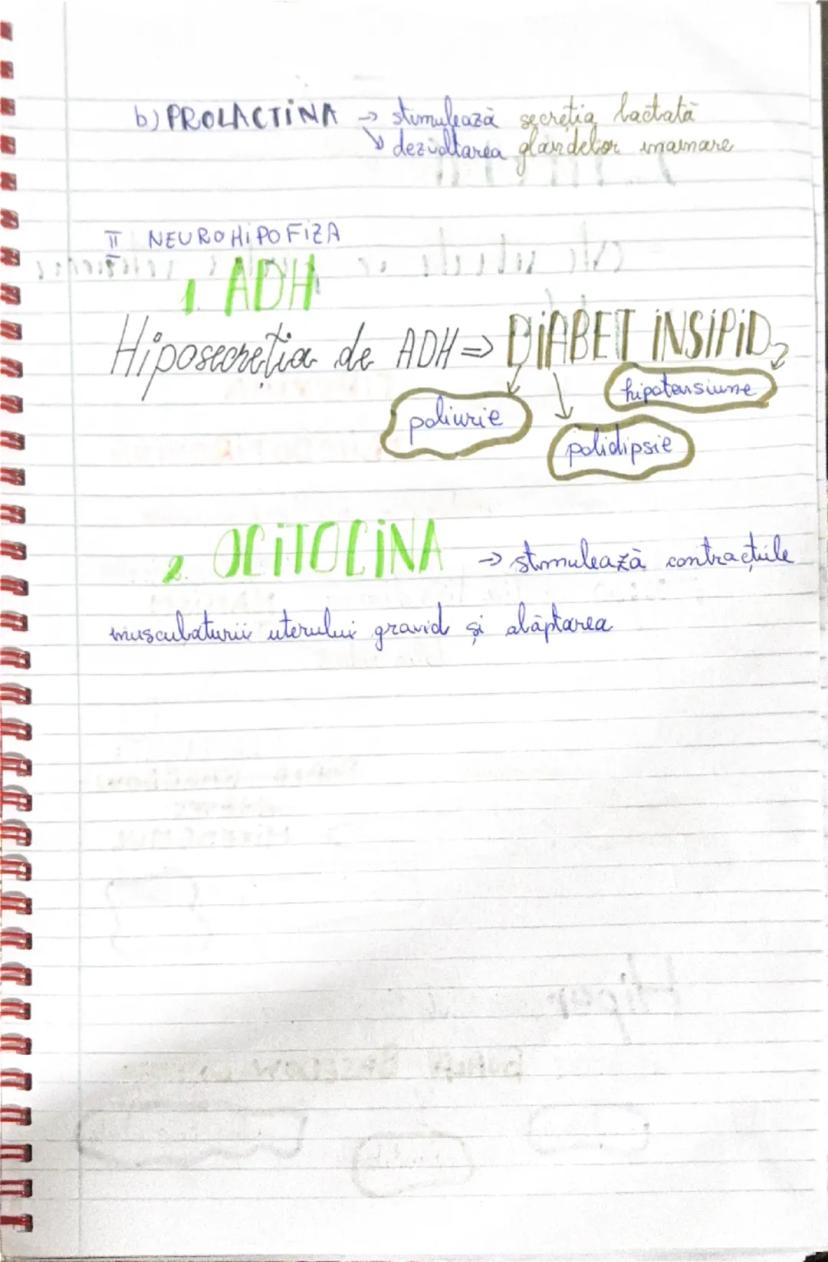 b) PROLACTINA → stimulează secreția lactată
↘ dezvoltarea glandelor mamare
II NEUROHIPOFIZA
1. ADH
Hiposecreția de ADH ⇒ DIABET INSIPID
hipotensiune
poliurie
polidipsie
2. OCITOCINA → stimulează contracțiile
musculaturii uterului gravid și alăptarea